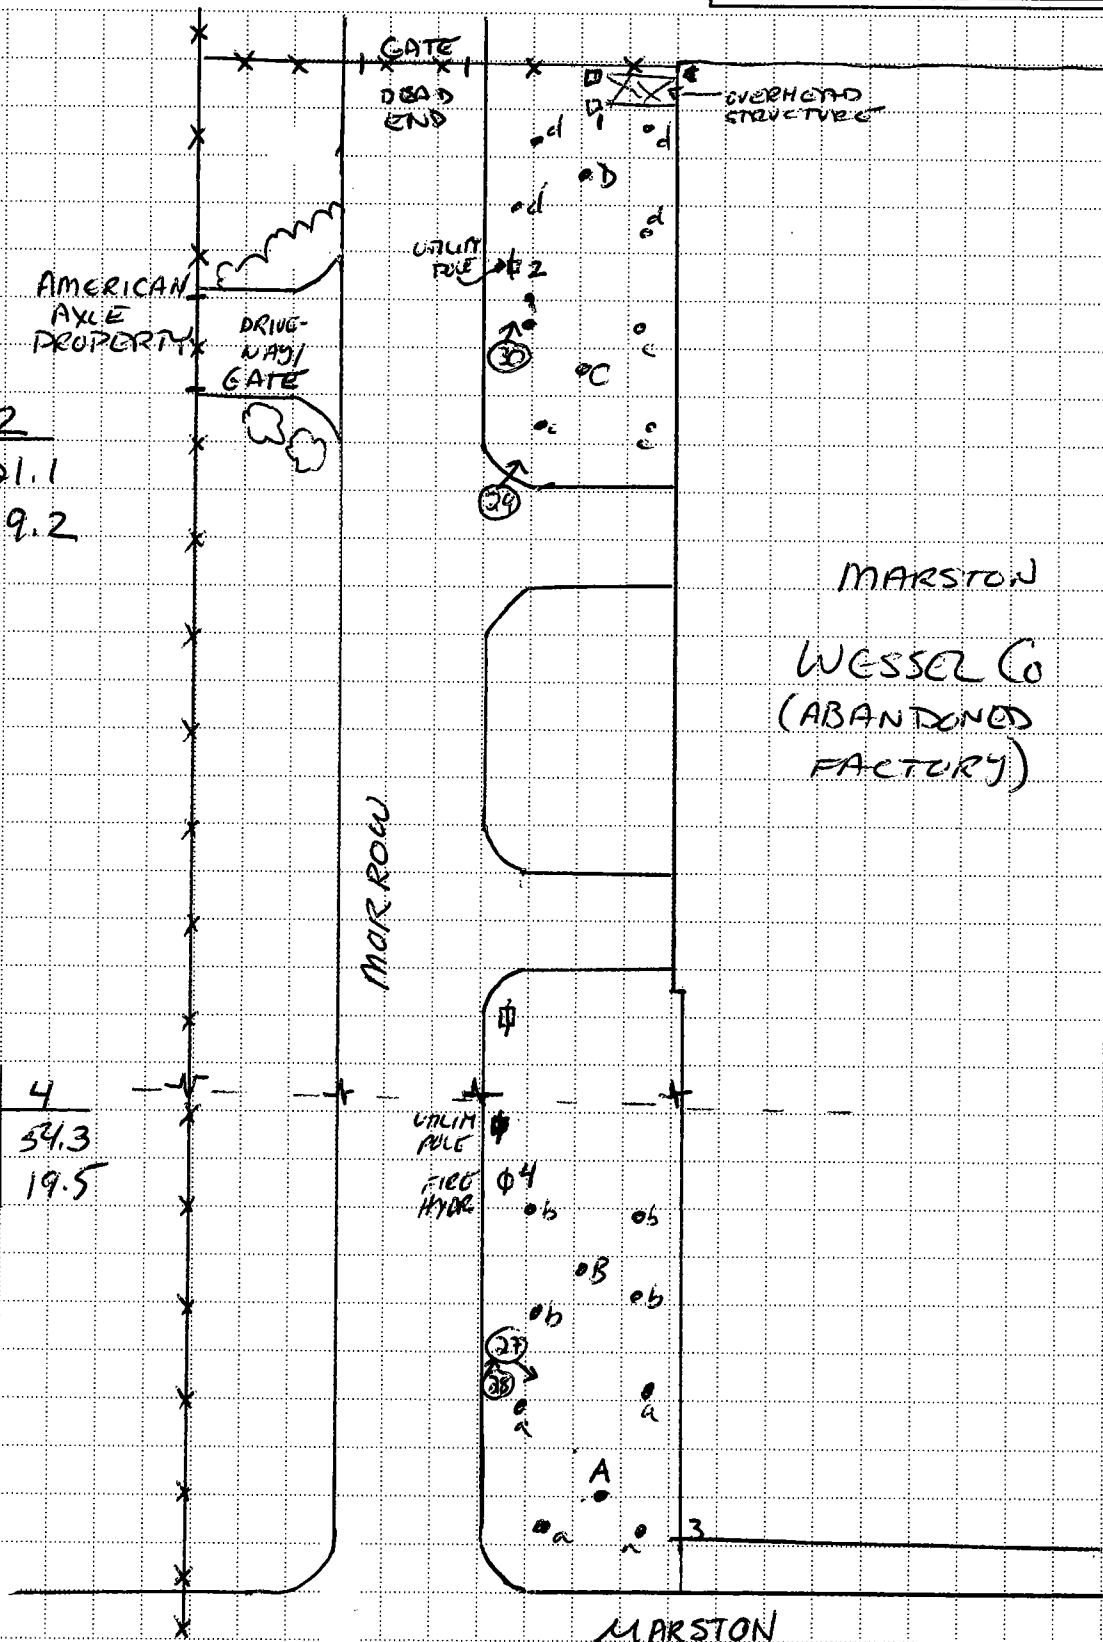 GATE
DEAD
END
OVERHEAD
STRUCTURE
1
d
d
D
d
d
UTILITY
POLE
2
AMERICAN
AXLE
PROPERTY
DRIVE-
WAY/
GATE
30
c
C
c
c
2
9.2
29
MARSTON
WESSEL Co
(ABANDONED
FACTORY)
MORROW
4
54.3
19.5
UTILITY
POLE
FIRE
HYDR
4
b
b
B
b
b
27
28
a
a
A
a
a
3
MARSTON